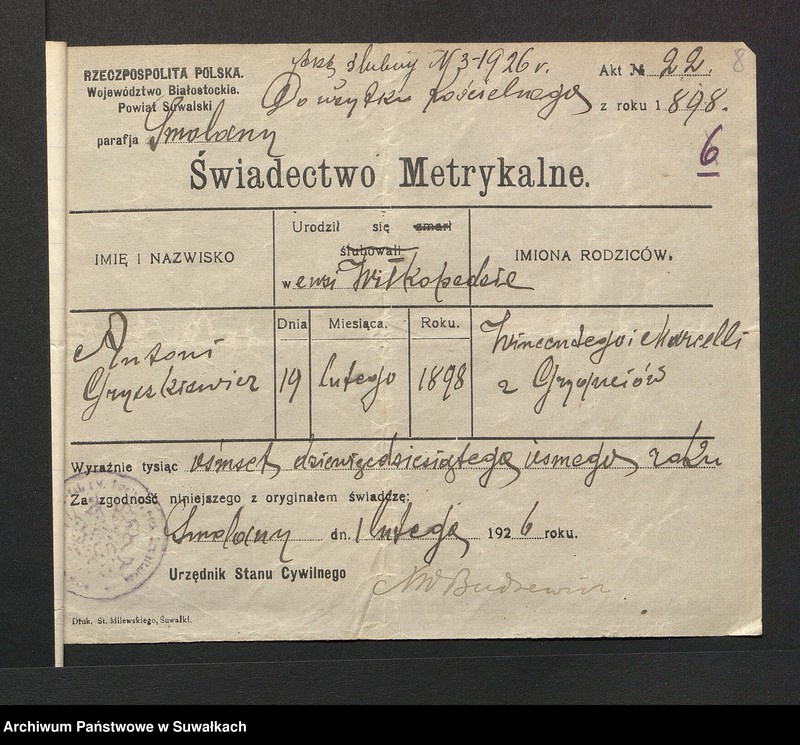 RZECZPOSPOLITA POLSKA.
Województwo Białostockie.
Powiat Suwalski
parafja Smolany
ślubny N 3-1926 r.
Do użytku kościelnego
Akt № 22.
z roku 1898.
8
6
Świadectwo Metrykalne.
IMIĘ I NAZWISKO
Urodził się zmarł
ślubowali
w e wsi Wiłkopedzie
IMIONA RODZICÓW.
Dnia Miesiąca. Roku.
Antoni
Gryszkiewicz
19 lutego 1898
Wincentego i Marcelli
z
Wyraźnie tysiąc ośmset dziewięćdziesiątego ósmego roku
Za zgodność niniejszego z oryginałem świadczę:
Smolany dn. 1 lutego 1926 roku.
Urzędnik Stanu Cywilnego
Druk. St. Milewskiego, Suwałki.
Archiwum Państwowe w Suwałkach